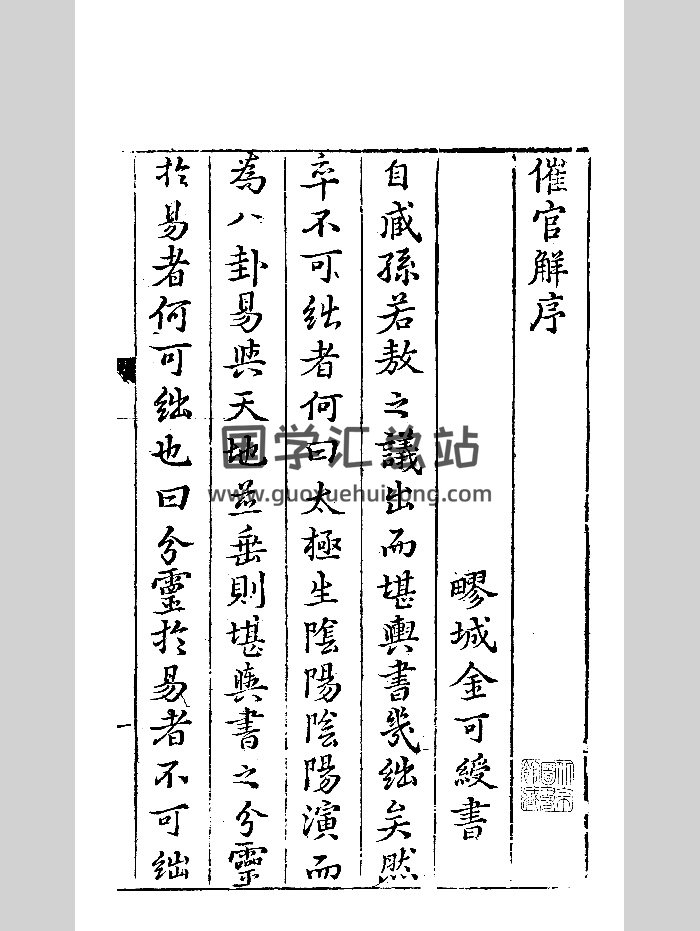 催官解序
疁城金可綬書
自臧孫若敖之議出而堪輿書幾絀矣然
卒不可絀者何曰太極生陰陽陰陽演而
為八卦易與天地並垂則堪輿書之分靈
於易者何可絀也曰分靈於易者不可絀
国学汇载站
www.guoxuehuizong.com